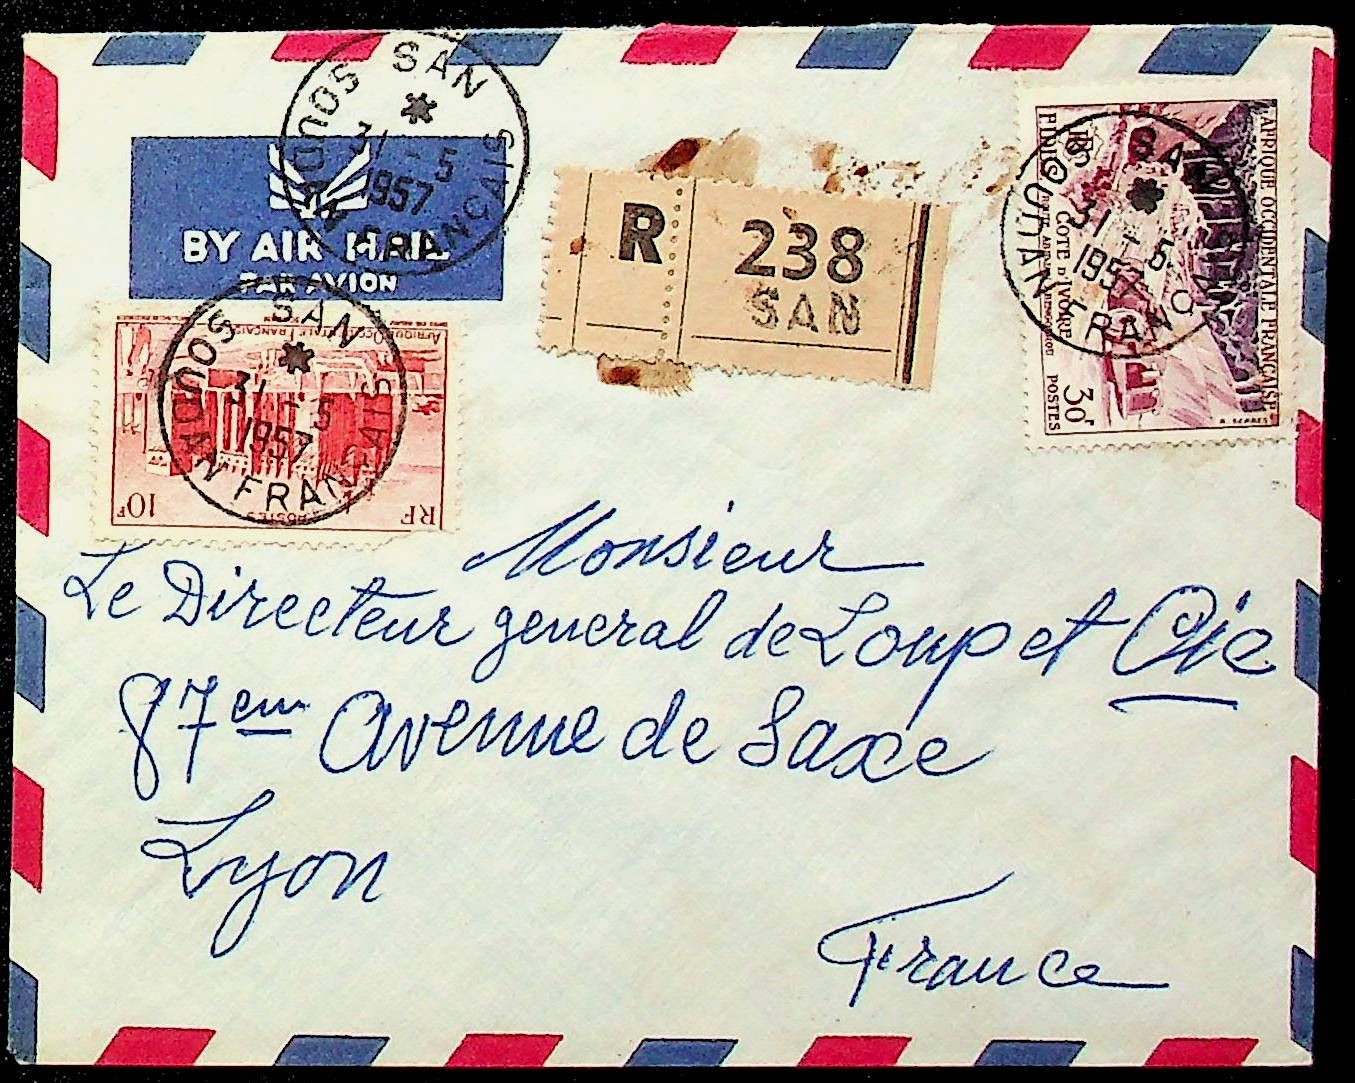 SAN
31 - 5
1957
SOUDAN FRANCAIS
BY AIR MAIL
PAR AVION
R 238
SAN
AFRIQUE OCCIDENTALE FRANÇAISE
F.I.D.E.S.
COTE D'IVOIRE
30F
POSTES
SAN
31 - 5
195
SOUDAN FRANÇAIS
AFRIQUE OCCIDENTALE FRANÇAISE
SAN
31 - 5
1957
SOUDAN FRANÇAIS
RF
POSTES
10F
Monsieur
Le Directeur general de Loup et Cie
87em Avenue de Saxe
Lyon
France